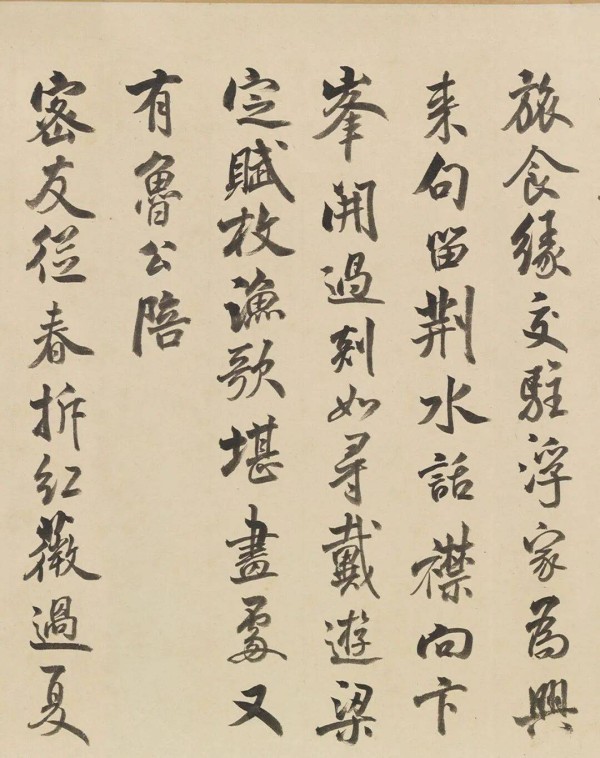 旅食緣交駐浮家為興
來句留荆水話襟向卞
峯開過剡如尋戴遊梁
定賦枚漁歌堪畫處又
有魯公陪
密友從春拆紅薇過夏